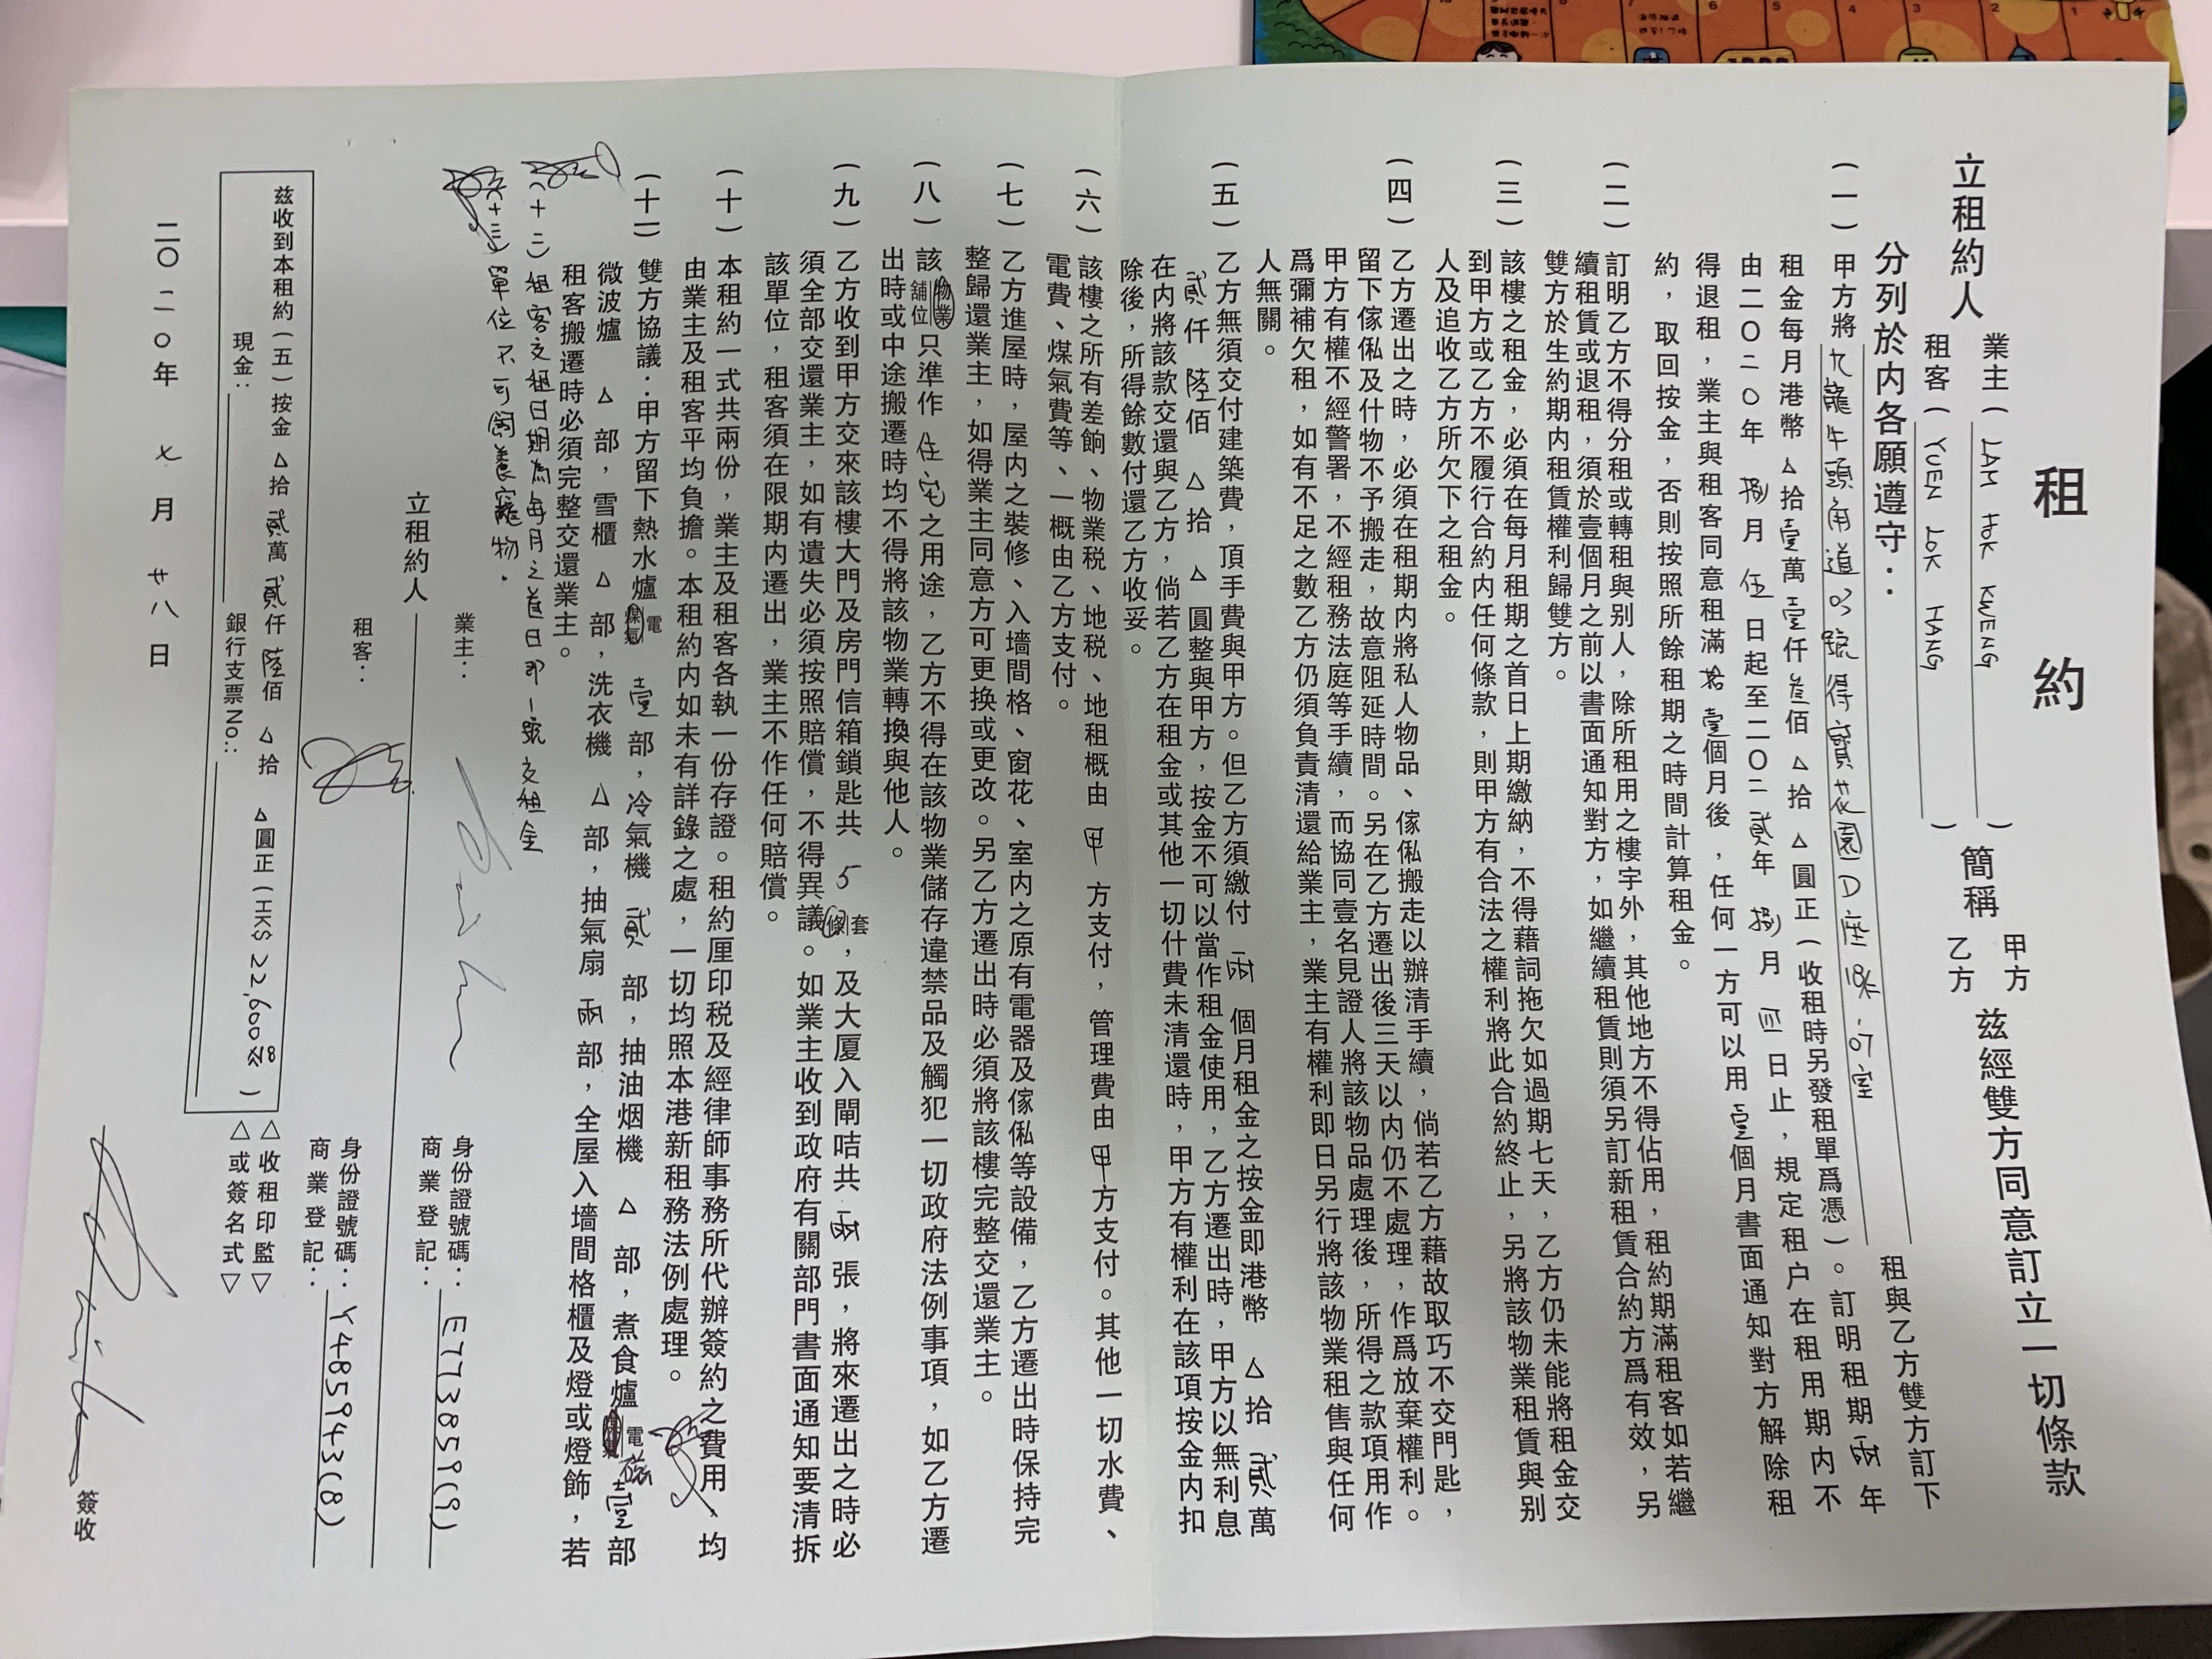 租 約
立租約人
業主（LAM HOK KWENG）
租客（YUEN LOK HANG）
簡稱
甲方
乙方
茲經雙方同意訂立一切條款
分列於内各願遵守：
（一）甲方將九龍牛頭角道03號得寶花園D座18/F-07室租與乙方雙方訂下
租金每月港幣△拾壹萬壹仟叁佰△拾△圓正（收租時另發租單爲憑）。訂明租期兩年
由二〇二〇年捌月伍日起至二〇二貳年捌月四日止，規定租户在租用期内不
得退租，業主與租客同意租滿拾壹個月後，任何一方可以用壹個月書面通知對方解除租
約，取回按金，否則按照所餘租期之時間計算租金。
（二）訂明乙方不得分租或轉租與别人，除所租用之樓宇外，其他地方不得佔用，租約期滿租客如若繼
續租賃或退租，須於壹個月之前以書面通知對方，如繼續租賃則須另訂新租賃合約方爲有效，另
雙方於生約期内租賃權利歸雙方。
（三）該樓之租金，必須在每月租期之首日上期繳納，不得藉詞拖欠如過期七天，乙方仍未能將租金交
到甲方或乙方不履行合約内任何條款，則甲方有合法之權利將此合約終止，另將該物業租賃與别
人及追收乙方所欠下之租金。
（四）乙方遷出之時，必須在租期内將私人物品、傢俬搬走以辦清手續，倘若乙方藉故取巧不交門匙，
留下傢俬及什物不予搬走，故意阻延時間。另在乙方遷出後三天以内仍不處理，作爲放棄權利。
甲方有權不經警署，不經租務法庭等手續，而協同壹名見證人將該物品處理後，所得之款項用作
爲彌補欠租，如有不足之數乙方仍須負責清還給業主，業主有權利即日另行將該物業租售與任何
人無關。
（五）乙方無須交付建築費，頂手費與甲方。但乙方須繳付兩個月租金之按金即港幣△拾貳萬
貳仟陸佰△拾△圓整與甲方，按金不可以當作租金使用，乙方遷出時，甲方以無利息
在内將該款交還與乙方，倘若乙方在租金或其他一切什費未清還時，甲方有權利在該項按金内扣
除後，所得餘數付還乙方收妥。
（六）該樓之所有差餉、物業税、地税、地租概由甲方支付，管理費由甲方支付。其他一切水費、
電費、煤氣費等、一概由乙方支付。
（七）乙方進屋時，屋内之裝修、入墻間格、窗花、室内之原有電器及傢俬等設備，乙方遷出時保持完
整歸還業主，如得業主同意方可更换或更改。另乙方遷出時必須將該樓完整交還業主。
（八）該物業舖位只準作住宅之用途，乙方不得在該物業儲存違禁品及觸犯一切政府法例事項，如乙方遷
出時或中途搬遷時均不得將該物業轉換與他人。
（九）乙方收到甲方交來該樓大門及房門信箱鎖匙共5套條，及大厦入閘咭共兩張，將來遷出之時必
須全部交還業主，如有遺失必須按照賠償，不得異議。如業主收到政府有關部門書面通知要清拆
該單位，租客須在限期内遷出，業主不作任何賠償。
（十）本租約一式共兩份，業主及租客各執一份存證。租約厘印税及經律師事務所代辦簽約之費用、均
由業主及租客平均負擔。本租約内如未有詳錄之處，一切均照本港新租務法例處理。
（十一）雙方協議：甲方留下熱水爐電煤氣壹部，冷氣機貳部，抽油烟機△部，煮食爐電磁壹部
微波爐△部，雪櫃△部，洗衣機△部，抽氣扇兩部，全屋入墻間格櫃及燈或燈飾，若
租客搬遷時必須完整交還業主。
（十二）租客交租日期為每月之首日即一號交租金
（十三）單位不可飼養寵物．
立租約人
業主：
身份證號碼：E773859(9)
商業登記：
租客：
身份證號碼：Y485943(8)
商業登記：
茲收到本租約（五）按金△拾貳萬貳仟陸佰△拾△圓正（HK$ 22,600）
現金：
銀行支票No.:
△收租印監▽
△或簽名式▽
簽收
二〇二〇年七月廿八日